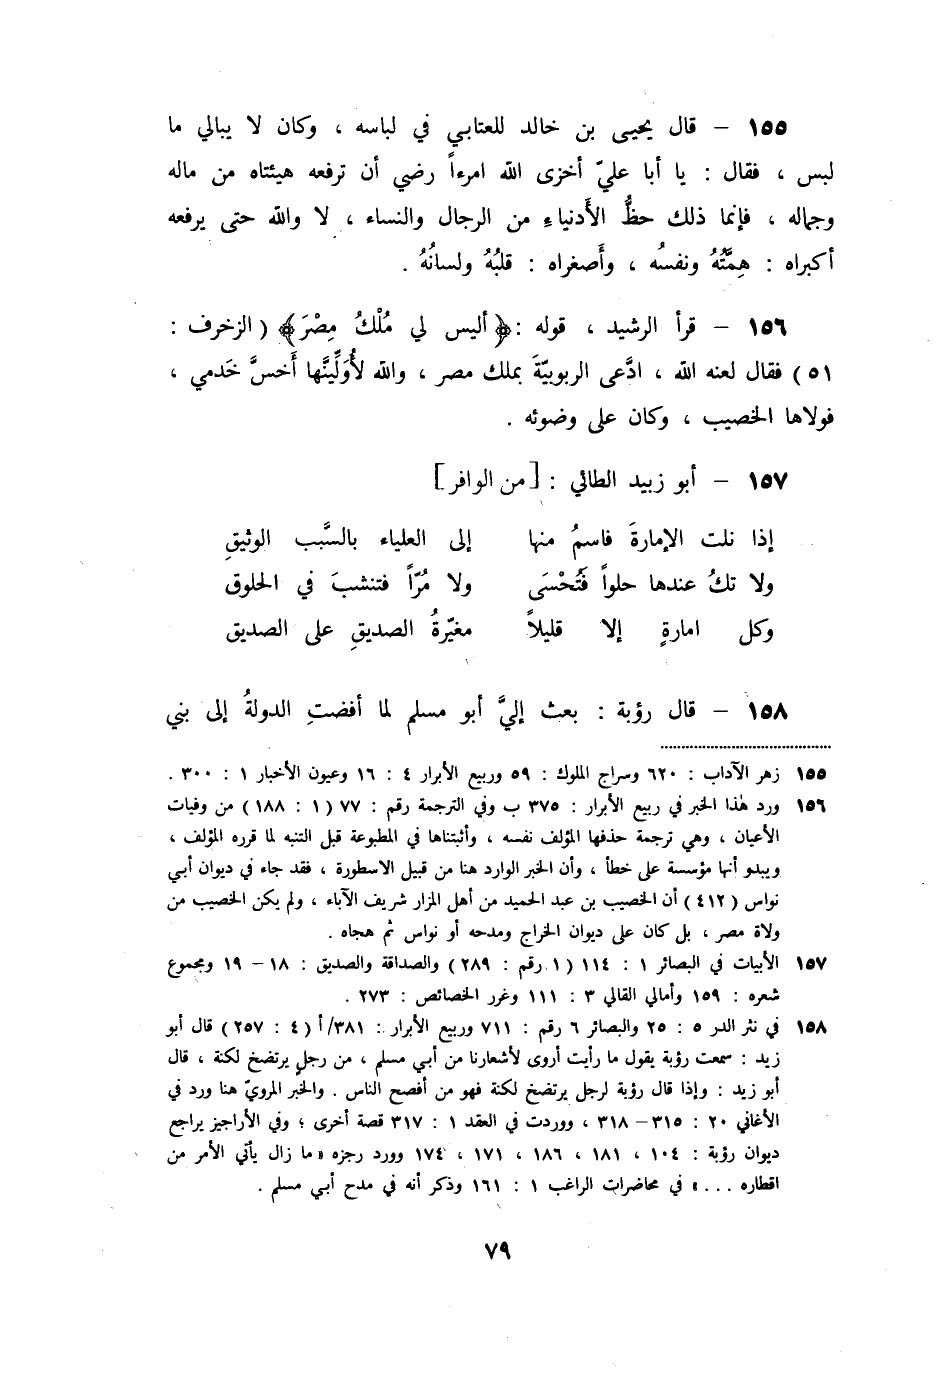 ١٥٥ – قال يحيى بن خالد للعتابي في لباسه ، وكان لا يبالي ما
لبس ، فقال : يا أبا عليّ أخزى الله امرءاً رضي أن ترفعه هيئتاه من ماله
وجماله ، فإنما ذلك حظُّ الأَدنياءِ من الرجال والنساء ، لا والله حتى يرفعه
أكبراه : هِمَّتُهُ ونفسُه ، وأَصغراه : قلبُهُ ولسانُهُ .
١٥٦ – قرأ الرشيد ، قوله :﴿ أليس لي مُلْكُ مِصْرَ﴾ ( الزخرف :
٥١ ) فقال لعنه الله ، ادَّعى الربوبيّةَ بملك مصر ، والله لأُوَلِّينَّها أَخسَّ خَدمي ،
فولاها الخصيب ، وكان على وضوئه .
١٥٧ – أبو زبيد الطائي : [من الوافر]
إذا نلت الإمارةَ فاسمُ منها إلى العلياء بالسَّبب الوثيقِ
ولا تكُ عندها حلواً فَتُحْسَى ولا مُرّاً فتنشبَ في الحلوق
وكل امارةٍ إلا قليلاً مغيّرةُ الصديقِ على الصديق
١٥٨ – قال رؤبة : بعث إليَّ أبو مسلم لما أفضتِ الدولةُ إلى بني
١٥٥ زهر الآداب : ٦٢٠ وسراج الملوك : ٥٩ وربيع الأبرار ٤ : ١٦ وعيون الأخبار ١ : ٣٠٠ .
١٥٦ ورد هٰذا الخبر في ربيع الأبرار : ٣٧٥ ب وفي الترجمة رقم : ٧٧ ( ١ : ١٨٨ ) من وفيات
الأعيان ، وهي ترجمة حذفها المؤلف نفسه ، وأثبتناها في المطبوعة قبل التنبه لما قرره المؤلف ،
ويبدو أنها مؤسسة على خطأ ، وأن الخبر الوارد هنا من قبيل الاسطورة ، فقد جاء في ديوان أبي
نواس ( ٤١٢ ) أن الخصيب بن عبد الحميد من أهل المزار شريف الآباء ، ولم يكن الخصيب من
ولاة مصر ، بل كان على ديوان الخراج ومدحه أو نواس ثم هجاه .
١٥٧ الأبيات في البصائر ١ : ١١٤ ( ١ رقم : ٢٨٩ ) والصداقة والصديق : ١٨ – ١٩ ومجموع
شعره : ١٥٩ وأمالي القالي ٣ : ١١١ وغرر الخصائص : ٢٧٣ .
١٥٨ في نثر الدر ٥ : ٢٥ والبصائر ٦ رقم : ٧١١ وربيع الأبرار : ٣٨١/ أ ( ٤ : ٢٥٧ ) قال أبو
زيد : سمعت رؤبة يقول ما رأيت أروى لأشعارنا من أبي مسلم ، من رجلٍ يرتضخ لكنة ، قال
أبو زيد : وإذا قال رؤبة لرجل يرتضخ لكنة فهو من أفصح الناس . والخبر المرويّ هنا ورد في
الأغاني ٢٠ : ٣١٥ – ٣١٨ ، ووردت في العقد ١ : ٣١٧ قصة أخرى ؛ وفي الأراجيز يراجع
ديوان رؤبة : ١٠٤ ، ١٨١ ، ١٨٦ ، ١٧١ ، ١٧٤ وورد رجزه « ما زال يأتي الأمر من
اقطاره ... » في محاضرات الراغب ١ : ١٦١ وذكر أنه في مدح أبي مسلم .
٧٩